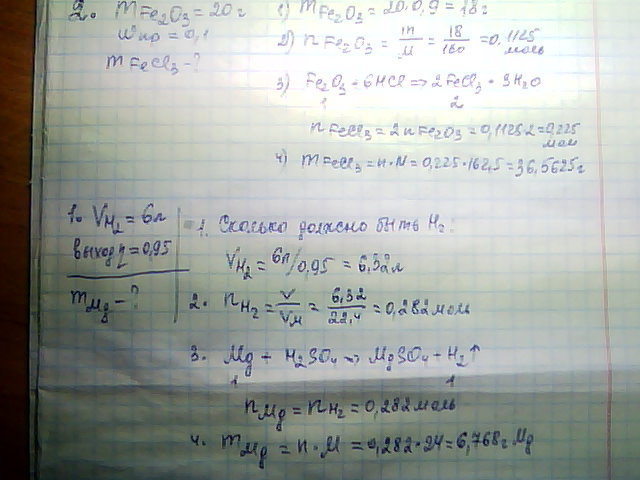 2. mFe₂O₃ = 20г
wпр = 0,1
mFeCl₃ - ?
1) mFe₂O₃ = 20·0,9 = 18г
2) nFe₂O₃ = m/M = 18/160 = 0,1125 моль
3) Fe₂O₃ + 6HCl ⇒ 2FeCl₃ + 3H₂O
1 2
nFeCl₃ = 2nFe₂O₃ = 0,1125·2 = 0,225 моль
4) mFeCl₃ = n·M = 0,225·162,5 = 36,5625г
1. VH₂ = 6л
выход η = 0,95
mMg - ?
1. Сколько должно быть H₂:
VH₂ = 6л/0,95 = 6,32л
2. nH₂ = V/VM = 6,32/22,4 = 0,282 моль
3. Mg + H₂SO₄ ⇒ MgSO₄ + H₂↑
1 1
nMg = nH₂ = 0,282 моль
4. mMg = n·M = 0,282·24 = 6,768г Mg